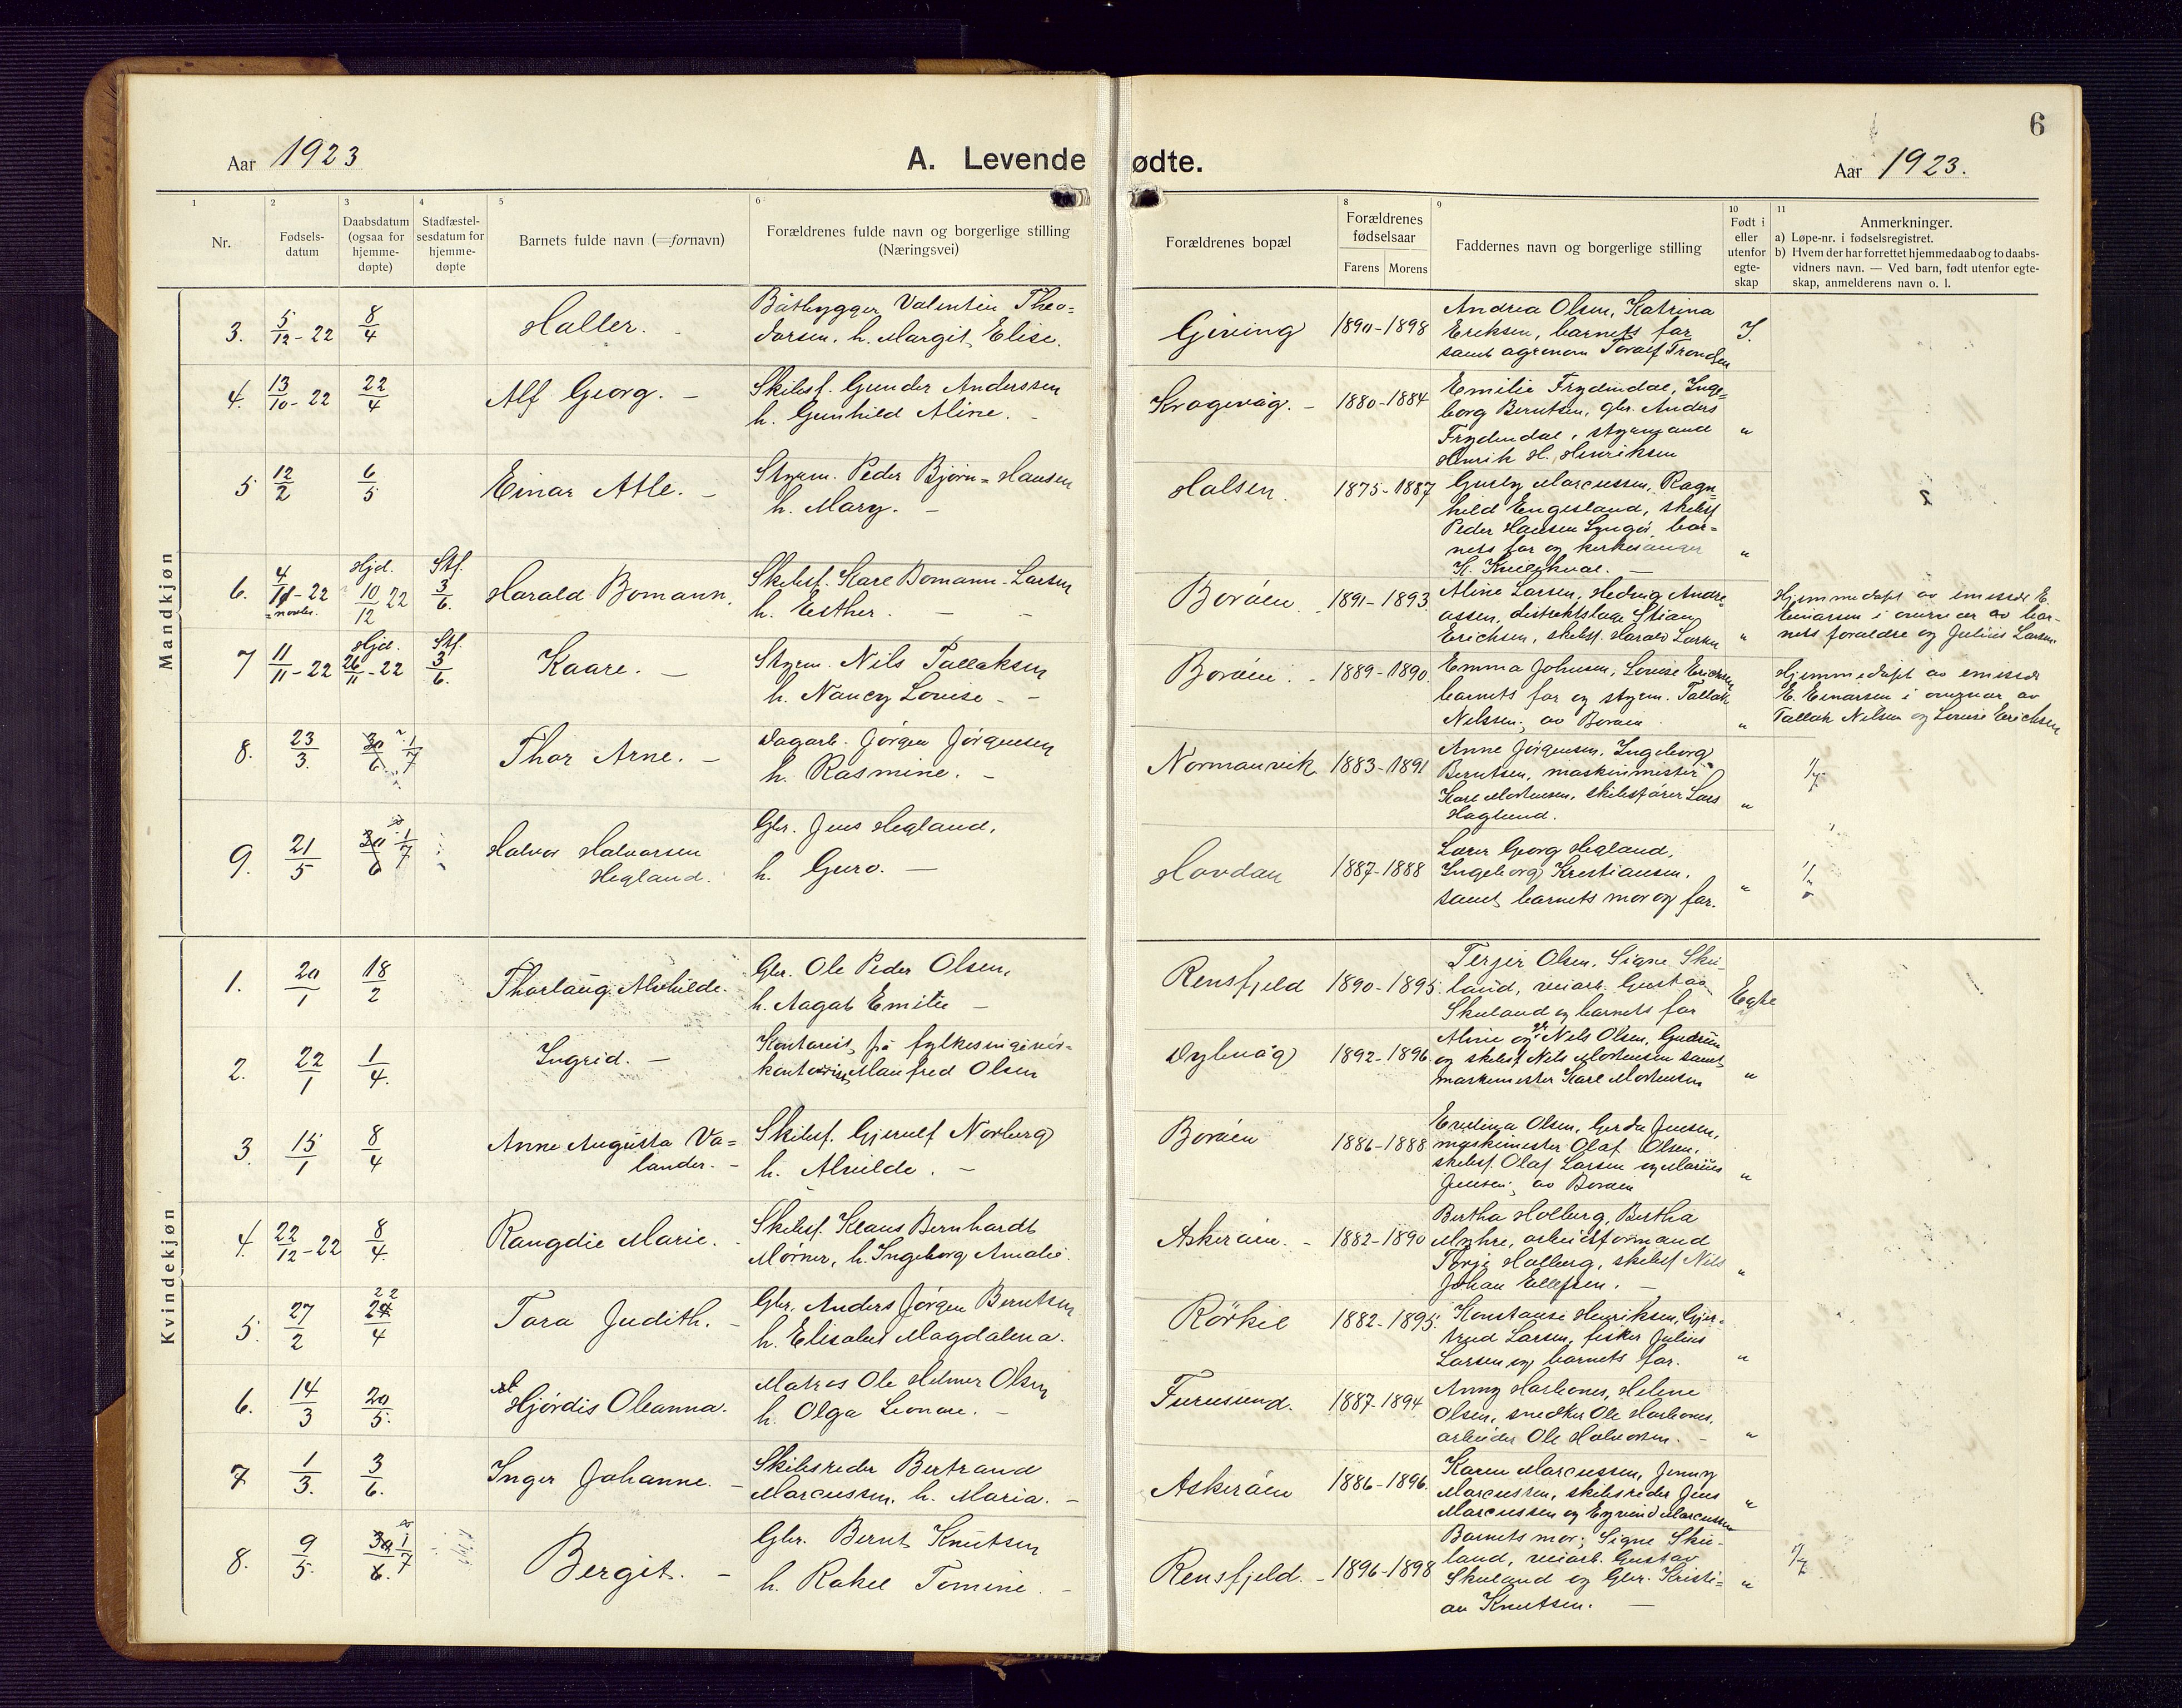 6
Aar 1923
A. Levende ødte.
Aar 1923.
1
Nr.
2
Fødsels-
datum
3
Daabsdatum
(ogsaa for
hjemme-
døpte)
4
Stadfæstel-
sesdatum for
hjemme-
døpte
5
Barnets fulde navn (=fornavn)
6
Forældrenes fulde navn og borgerlige stilling
(Næringsvei)
Forældrenes bopæl
8
Forældrenes
fødselsaar
Farens Morens
9
Faddernes navn og borgerlige stilling
10
Født i
eller
utenfor
egte-
skap
11
Anmerkninger.
a) Løpe-nr. i fødselsregistret.
b) Hvem der har forrettet hjemmedaab og to daabs-
vidners navn. — Ved barn, født utenfor egte-
skap, anmelderens navn o. l.
Mandkjøn
3. 5/12-22 8/4 Haller.
Båtbygger Valentin Theo=
dorsen, h. Margit Elise.
Giving 1890-1898
Andrea Olsen, Katrina
Eriksen, barnets far
samt agronom Toralf Tronsen
I.
4. 13/10-22 22/4 Alf Georg. –
Skibsf. Gunder Anderssen
h. Gunhild Aline. –
Kragevåg. – 1880-1884
Emilie Frydendal, Inge=
borg Berntsen, gbr. Anders
Frydendal, styrmand
Henrik H. Henriksen
"
5 12/2 6/5 Einar Atle. –
Styrm. Peder Bjørn=Hansen
h. Mary. –
Halsen. 1875-1887
Gusty Marcussen, Ragn=
hild Engesland, skibsf
Peder Hansen Lyngör, bar=
nets far og kirkesanger
"
6. 4/11-22 novbr. Hjd. 10/12 22 Stf. 3/6. Harald Bomann.
Skibsf. Karl Bomann-Larsen
h. Esther. –
Boröen 1891-1893.
Aline Larsen, Hedvig Andre=
assen, distriktslæge Stian
Erichsen, skibsf. Harald Larsen
"
Hjemmedøpt av emissær E.
Einarsen i overvær av bar-
nets foraldre og Julius Larsen.
7 11/11-22 Hjd. 26/11-22 Stf. 3/6. Kaare. –
Styrm. Nils Tallaksen
h. Nancy Louise –
Boröen. – 1889-1890.
Emma Johnsen, Louise Erichsen
barnets far og styrm. Tallak
Nilssen, av Boröen
"
Hjemmedøpt av emissær
E. Einarsen i overvær av
Tallak Nilsen og Louise Erichsen
8. 23/3. 30/6 1/7 Thor Arne. –
Dagarb. Jörgen Jörgensen
h. Rasmine. –
Normanvik 1883-1891
Anne Jörgensen, Ingeborg
Berntsen, maskinmester
Karl Mortensen, skibsfører Lars
Haglund.
"
1/7
9. 21/5 30/6 1/7 Halvor Halvorsen
Hegland.
Gbr. Jens Hegland,
h. Guro. –
Hovdan 1887-1888
Lærer Georg Hegland,
Ingeborg Kristiansen,
samt barnets mor og far.
"
Kvindekjøn
1. 20/1 18/2 Thorlaug Alvhilde.
Gbr. Ole Peder Olsen,
h. Aagot Emilie –
Rensfjeld 1890-1895.
Terjer Olsen, Signe Sku-
land, veiarb. Gustav
Skuland og barnets far
Egte
2. 22/1 1/4. Ingrid. –
Manfred Olsen
Dybvåg 1892-1896.
Aline og Nils Olsen, Gudrun
og skibsf. Nils Mortensen samt
maskinmester Karl Mortensen
"
3. 15/1 8/4 Anne Augusta Va=
lander. –
Skibsf. Gjerulf Norberg
h. Alvilde. –
Boröen 1886-1888
Evelina Olsen, Gerda Jensen,
maskinmester Olaf Olsen,
skibsf. Olaf Larsen og Marius
Jensen, av Boröen
"
4. 22/12-22 8/4. Rangdie Marie. –
Skibsf. Klaus Bernhardt
Mörner, h. Ingeborg Amalie.
Askeröen. – 1882-1890
Bertha Holberg, Bertha
Myhre, arbeidsformand
Terje Holberg, skibsf Nils
Johan Ellefsen. –
"
5. 27/2 22 24/4 Tora Judith. –
Gbr. Anders Jörgen Berntsen
h. Elisabet Magdalena.
Rörkil 1882-1895.
Konstanse Henriksen, Gjer-
trud Larsen, fisker Julius
Larsen og barnets far.
"
6. 14/3 20/5. Hjördis Oleanna.
Matros Ole Helmer Olsen
h. Olga Leonare. –
Furusund. 1887-1894
Anny Harbones, Helene
Olsen, snedker Ole Harbones,
arbeider Ole Halvorsen. –
"
7 1/3. 3/6. Inger Johanne. –
Skibsreder Bertrand
Marcussen, h. Maria. –
Askeröen 1886-1896.
Karen Marcussen, Jenny
Marcussen, skibsreder Jens
Marcussen og Eyvind Marcussen
"
8. 9/5. 30/6. 1/7 Bergit. –
Gbr. Bernt Knutsen
h. Rakel Tomine. –
Rensfjeld. – 1896-1898
Barnets mor, Signe Sku-
land, veiarb. Gustav
Skuland og Gbr. Kristi=
an Knutsen. –
"
1/7